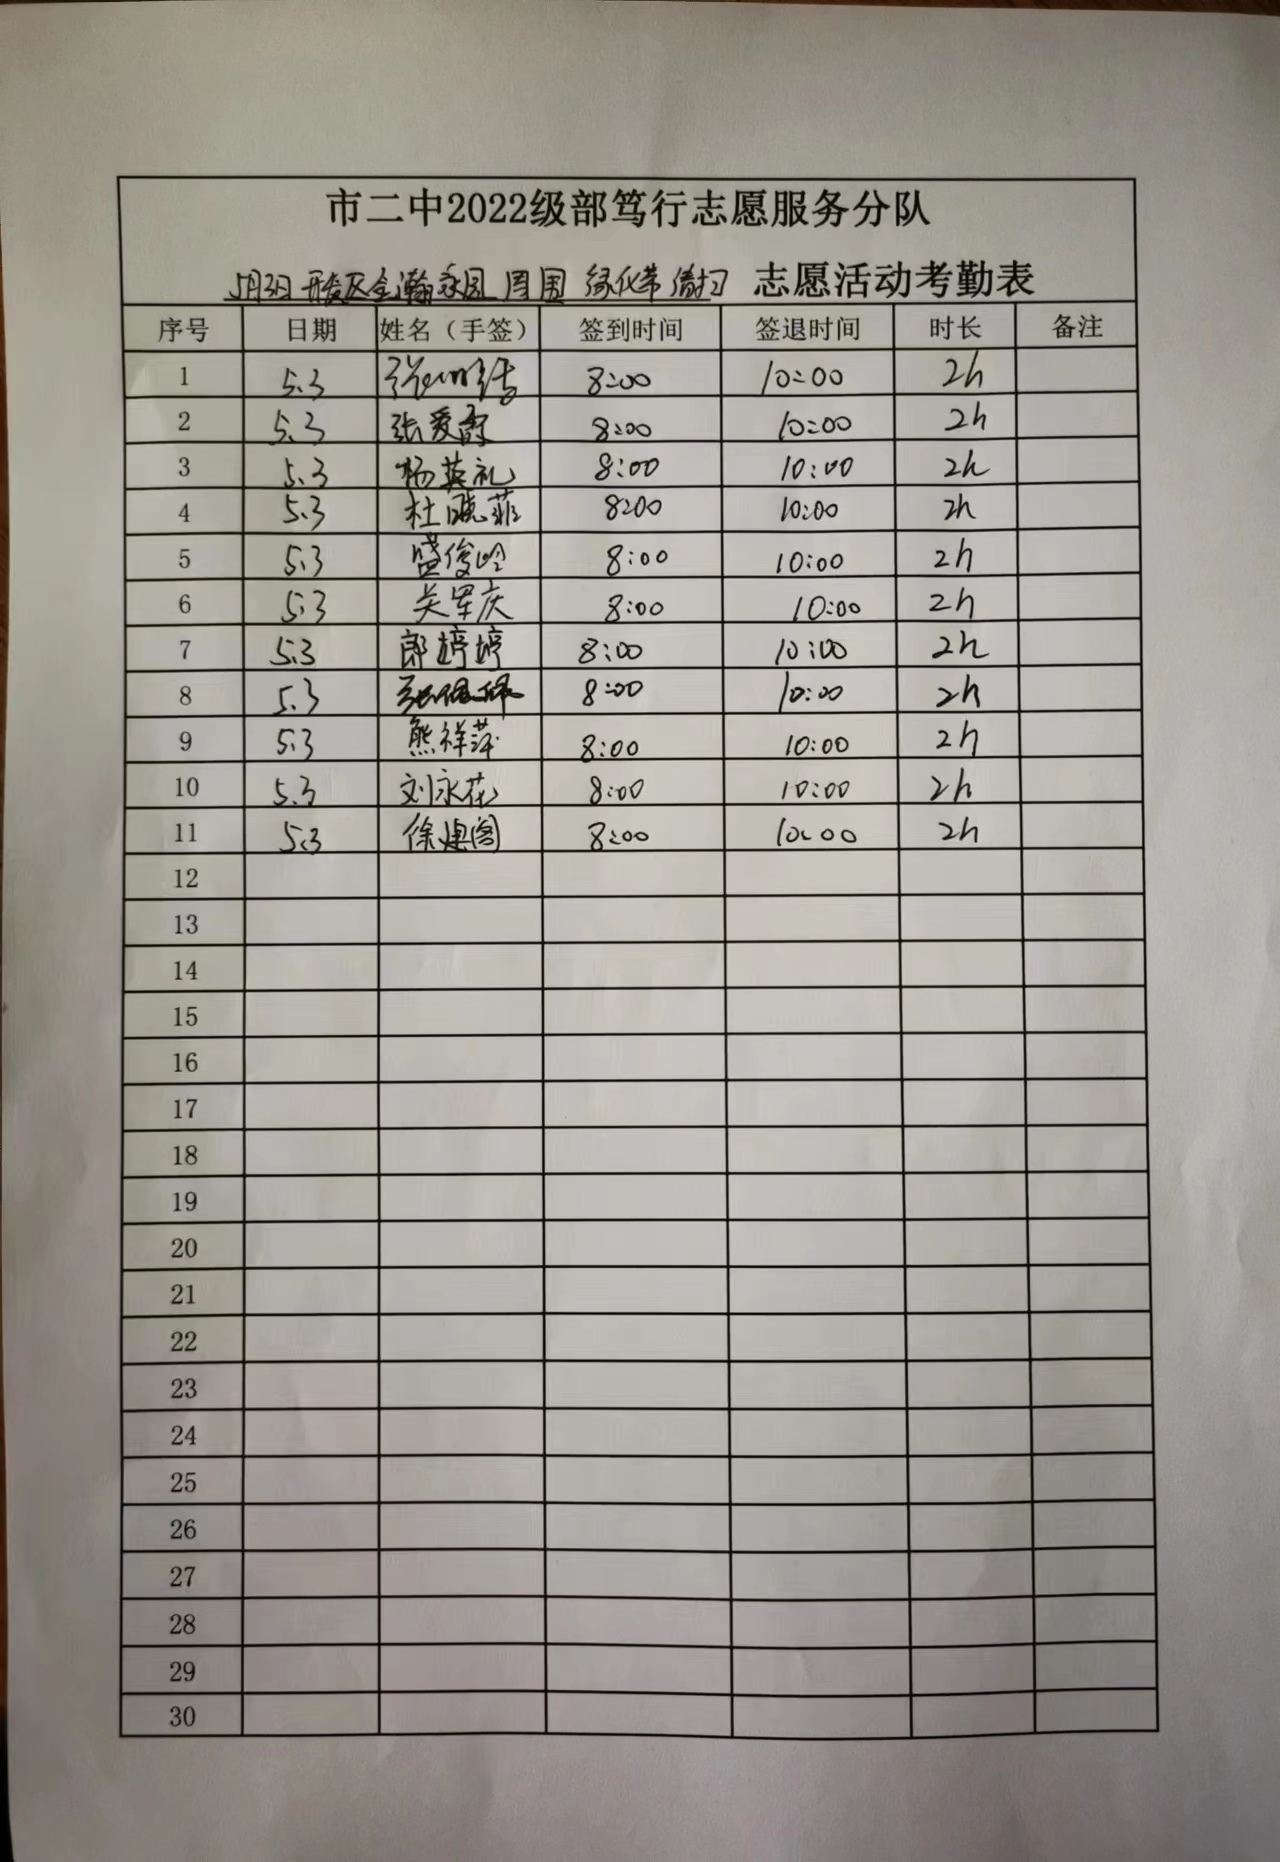 市二中2022级部笃行志愿服务分队
5月3日 开发区金瀚家园 周围 绿化带清扫 志愿活动考勤表
序号 日期 姓名（手签） 签到时间 签退时间 时长 备注
1 5.3 8:00 10:00 2h
2 5.3 张爱 8:00 10:00 2h
3 5.3 杨英礼 8:00 10:00 2h
4 5.3 杜晓菲 8:00 10:00 2h
5 5.3 盛俊岭 8:00 10:00 2h
6 5.3 吴军庆 8:00 10:00 2h
7 5.3 郎婷婷 8:00 10:00 2h
8 5.3 张佩佩 8:00 10:00 2h
9 5.3 熊祥萍 8:00 10:00 2h
10 5.3 刘永花 8:00 10:00 2h
11 5.3 徐建阁 8:00 10:00 2h
12
13
14
15
16
17
18
19
20
21
22
23
24
25
26
27
28
29
30